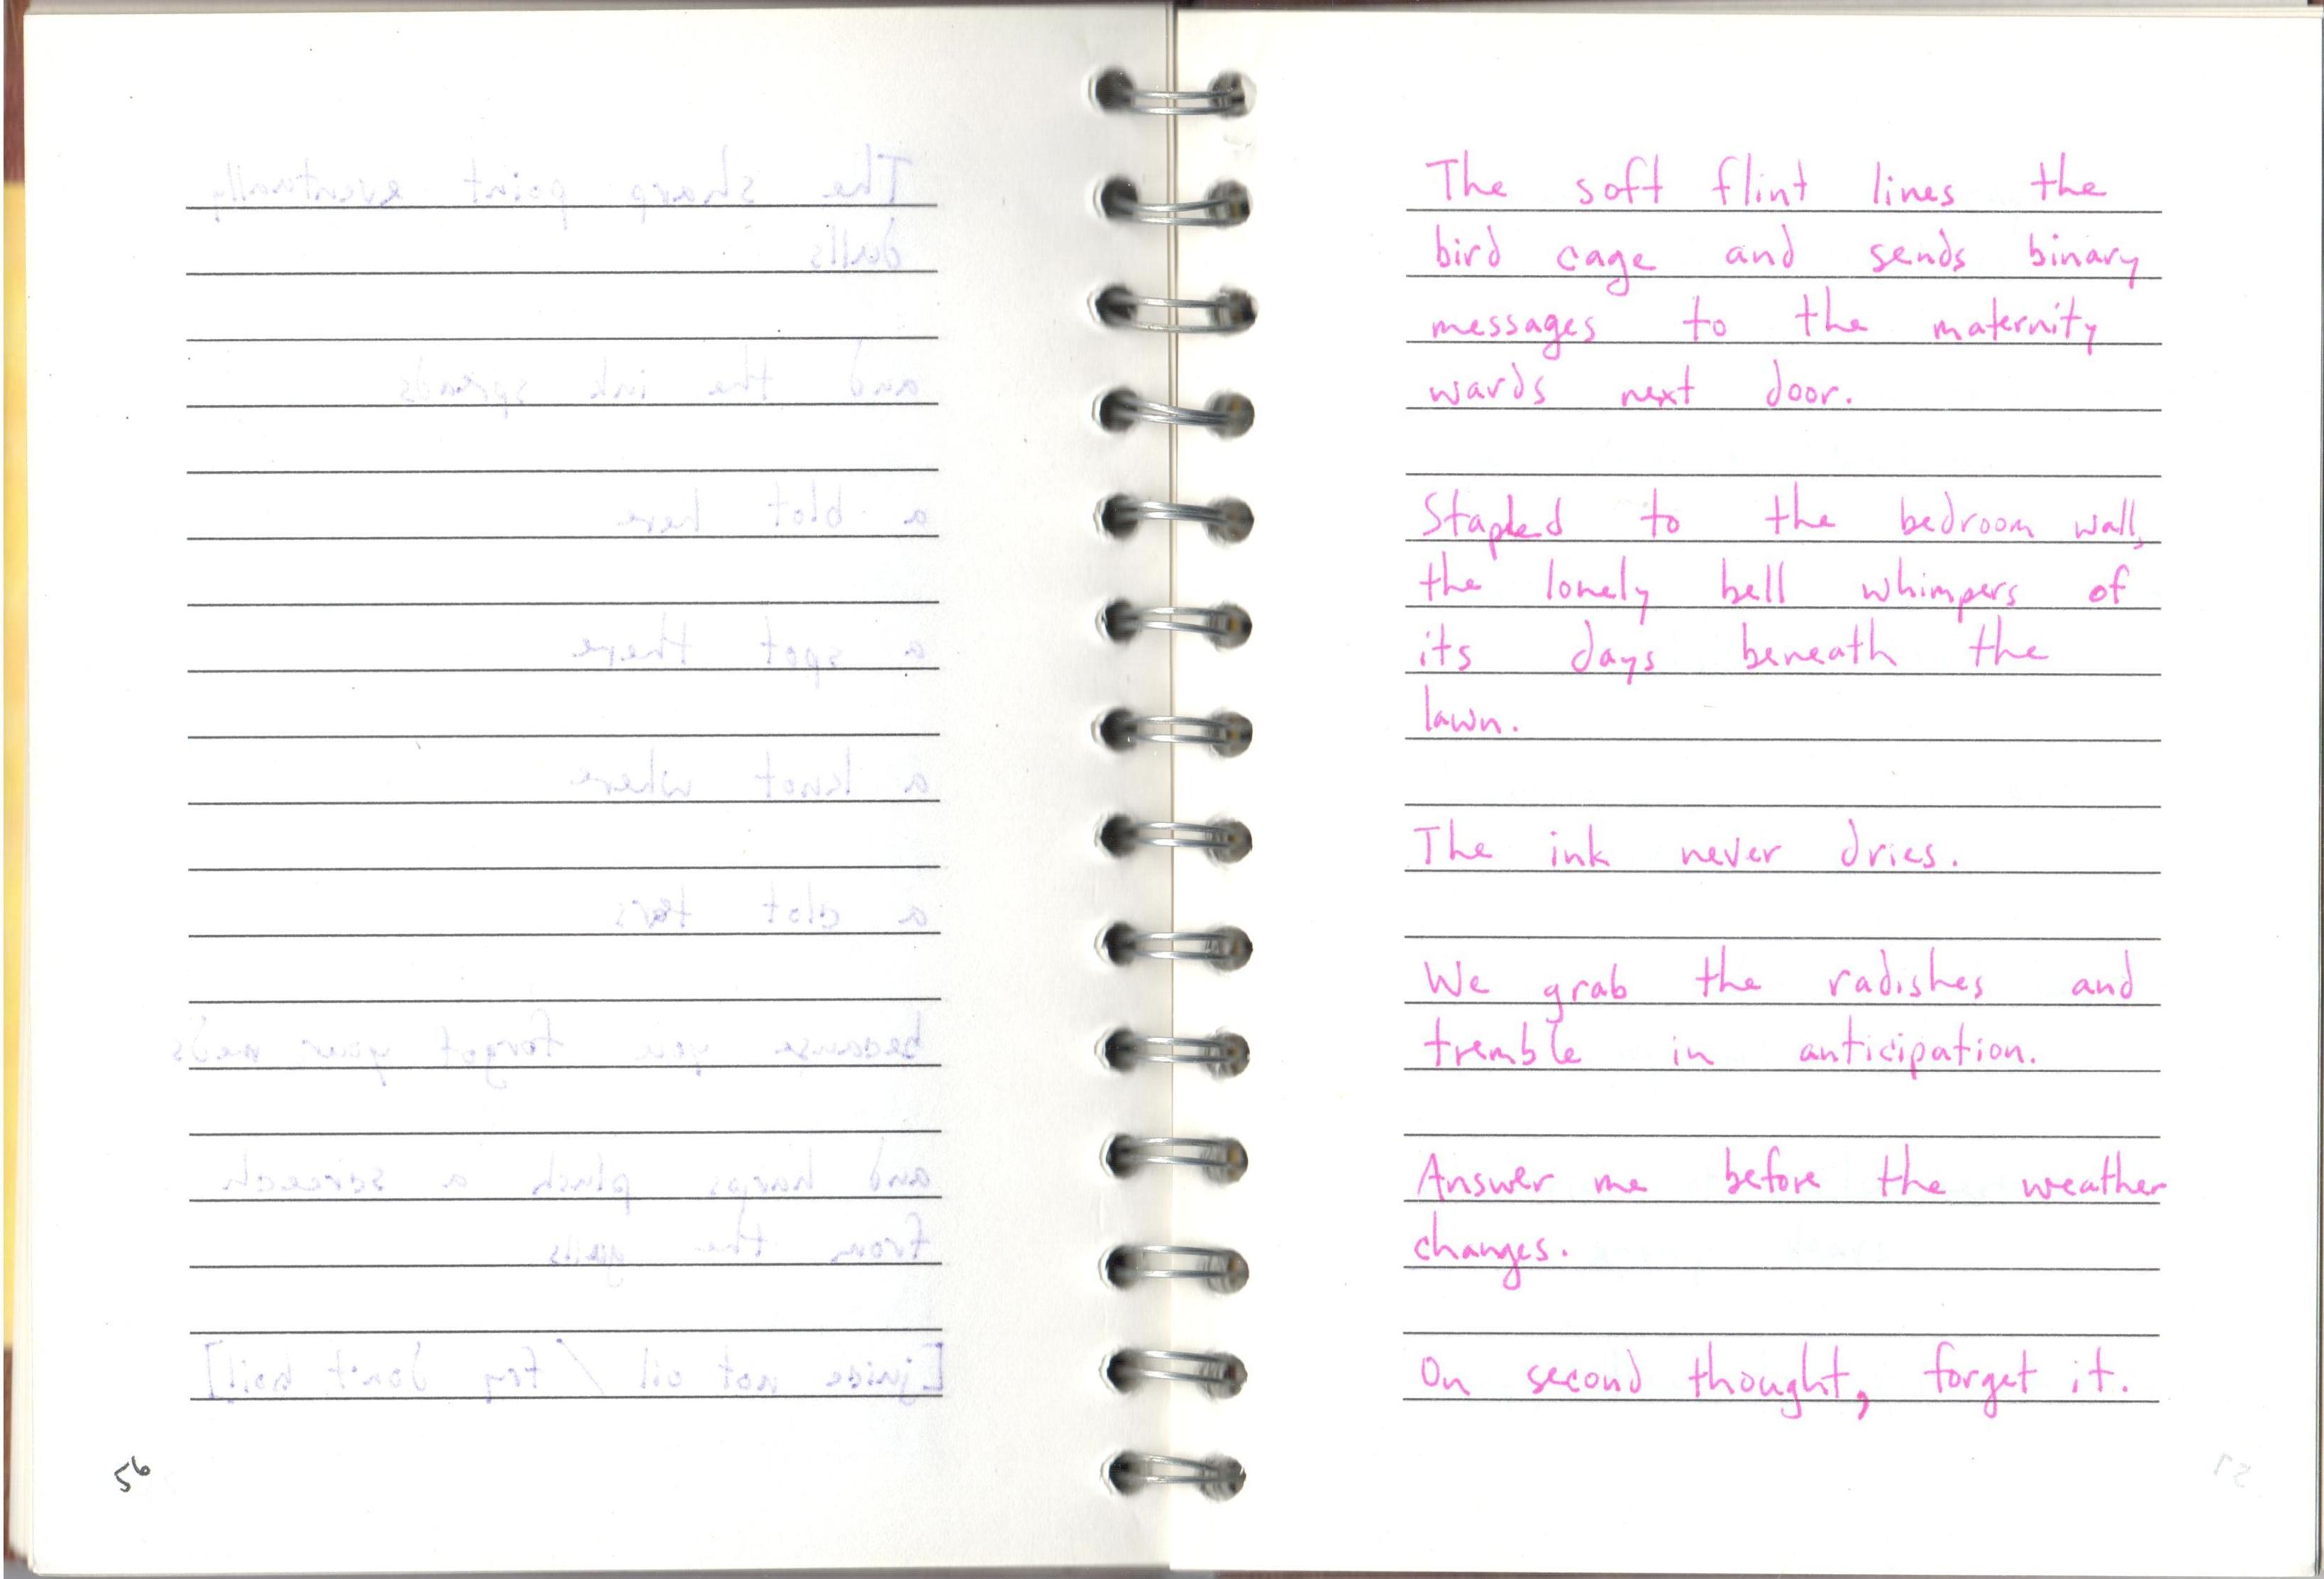 The sharp point eventually
dulls
and the ink spreads
a blot here
a spot there
a knot where
a clot
because you forgot your meds
and harps pluck a screech
from the
[juice not oil / fry don't boil]
56
The soft flint lines the
bird cage and sends binary
messages to the maternity
wards next door.
Stapled to the bedroom wall,
the lonely bell whimpers of
its days beneath the
lawn.
The ink never dries.
We grab the radishes and
tremble in anticipation.
Answer me before the weather
changes.
On second thought, forget it.
57